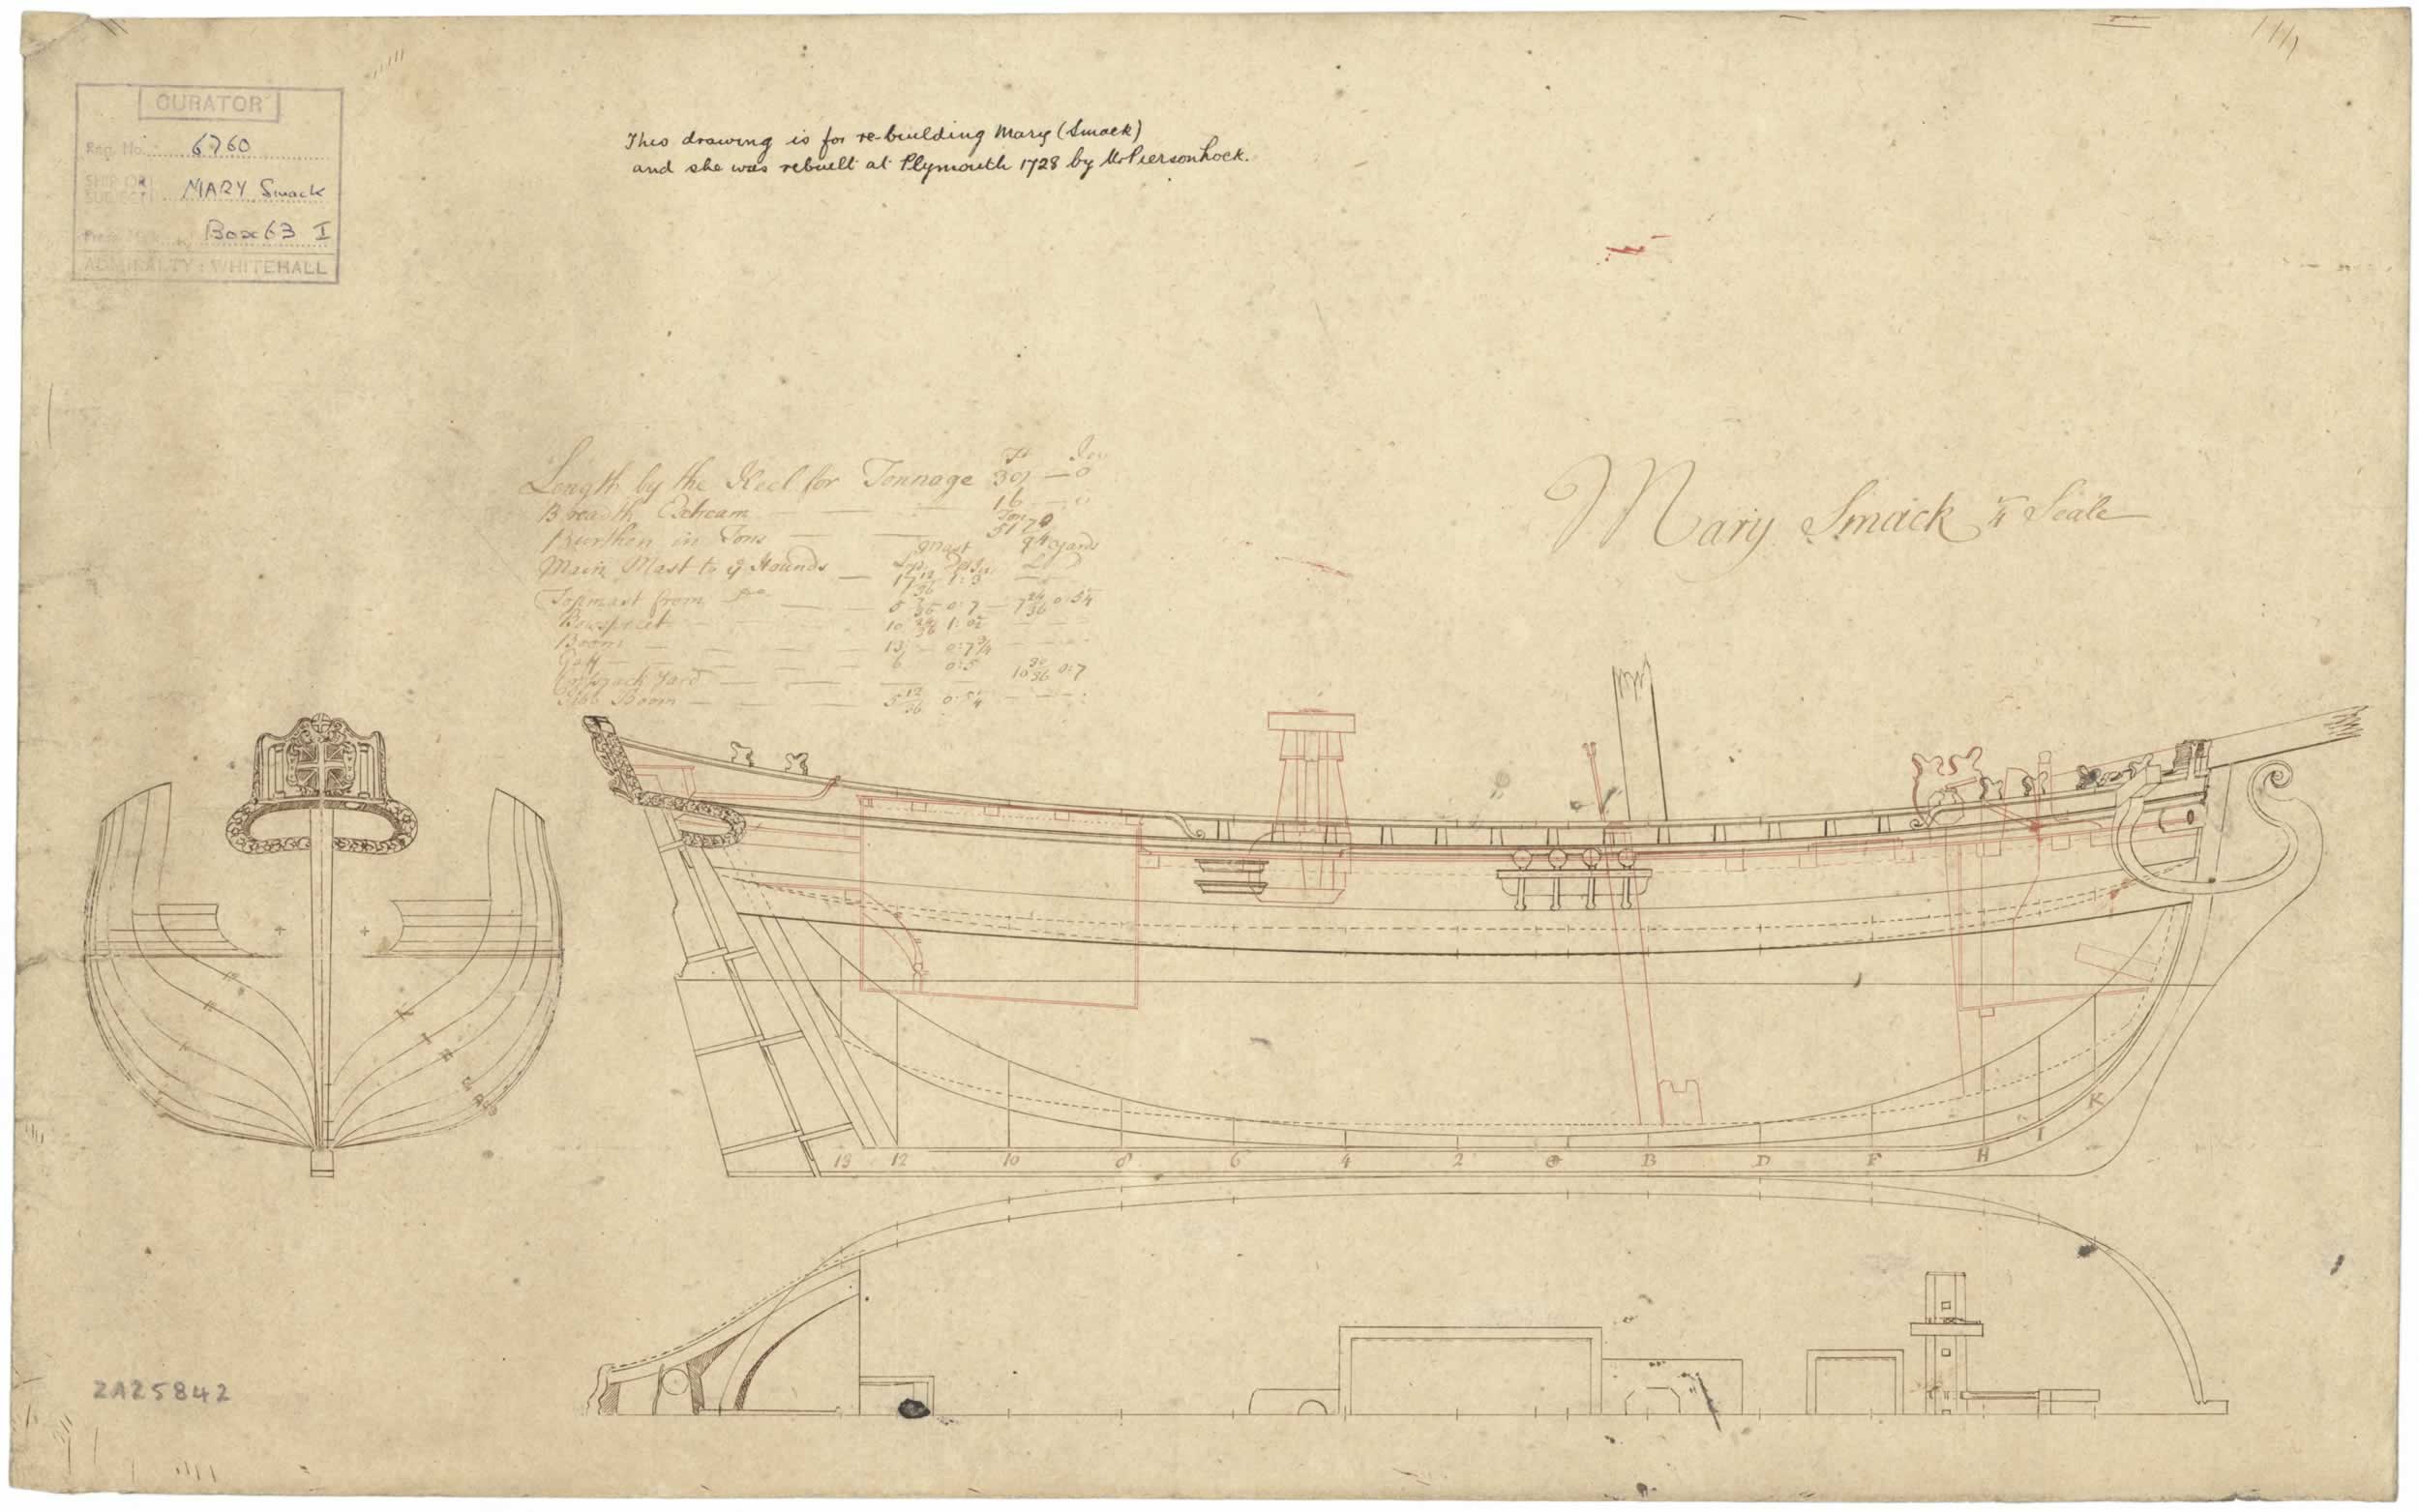 CURATOR
Reg. No. 6760
SHIP OR SUBJECT MARY Smack
Box 63 I
ADMIRALTY: WHITEHALL
This drawing is for re-building Mary (Smack)
and she was rebuilt at Plymouth 1728 by Mr Pierson Lock.
Ft Ins
Length by the Keel for Tonnage 39 — 0
Breadth Extream — — 16 —
Burthen in Tons —
Mast Yards
Main Mast to ye Hounds — 17 12/36 1:3
Topmast from Do — — 0:7 — 7 24/36 0:5¼
Bowspreet — — — 10
Boom — — — 13 — 0:7¾
Gaff — — — 6 0:5
Crossjack Yard — — — 10 30/36 0:7
Jibb Boom — — — 5 12/36
Mary Smack ¼ Scale
13 12 10 8 6 4 2 B D F H I K
ZAZ5842